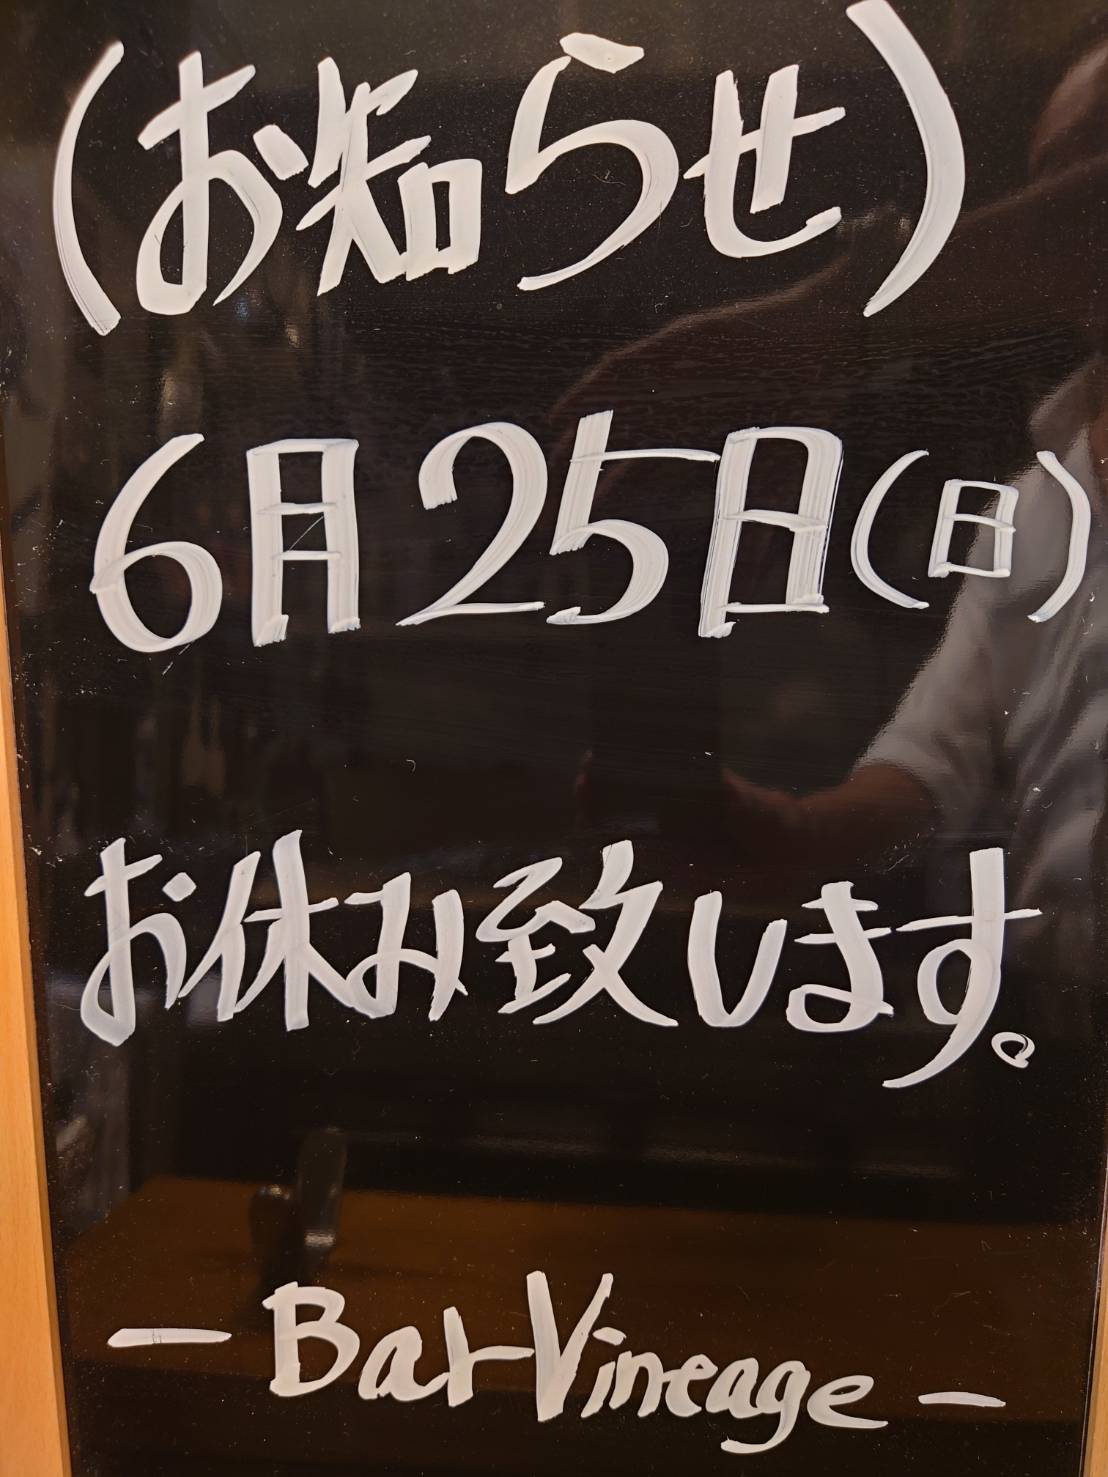 (お知らせ)
6月25日(日)
お休み致します。
-Bar Vineage-